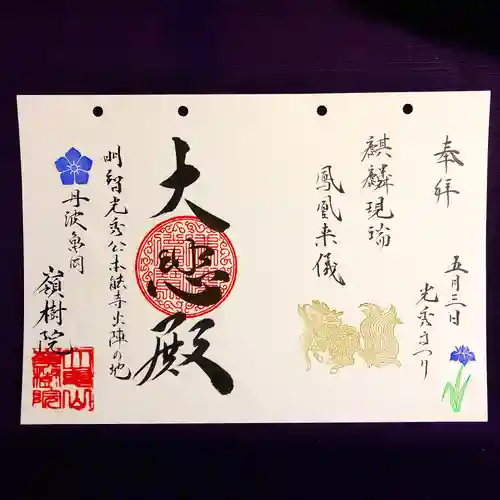 奉拝
五月三日
光秀まつり
麒麟現瑞
鳳凰来儀
大悲殿
明智光秀公本能寺出陣の地
丹波亀岡
嶺樹院